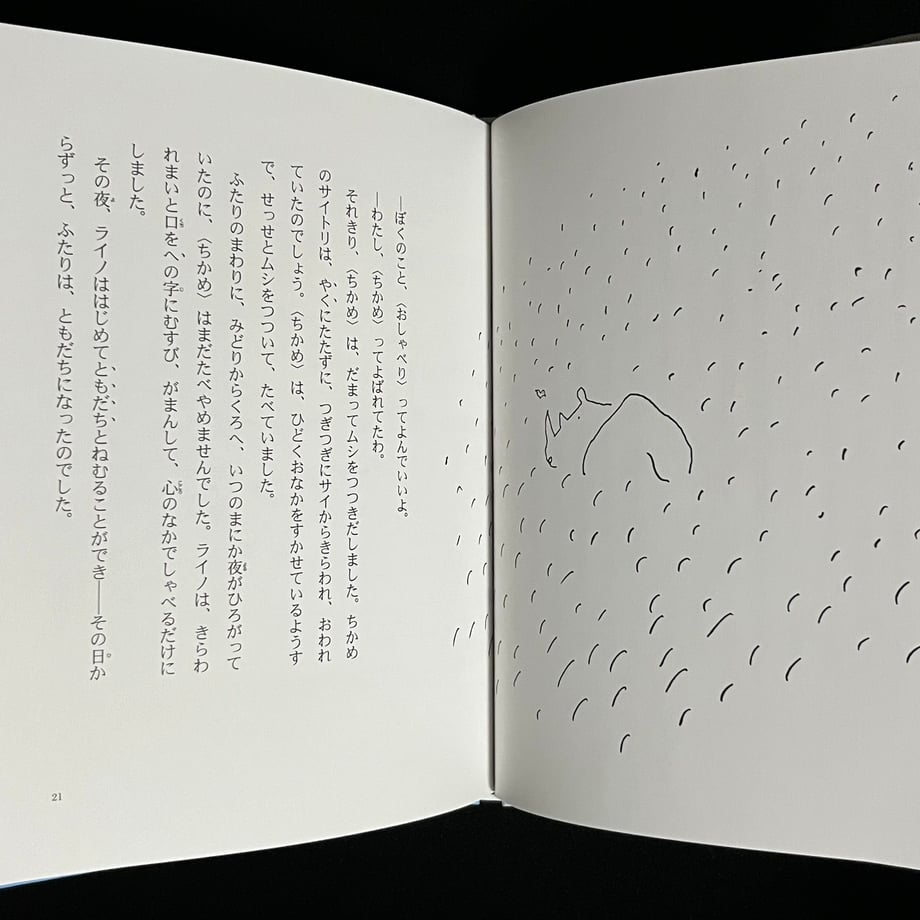 ―ぼくのこと、〈おしゃべり〉ってよんでいいよ。
―わたし、〈ちかめ〉ってよばれてたわ。
それきり、〈ちかめ〉は、だまってムシをつつきだしました。ちかめ
のサイトリは、やくにたたずに、つぎつぎにサイからきらわれ、おわれ
ていたのでしょう。〈ちかめ〉は、ひどくおなかをすかせているようす
で、せっせとムシをつついて、たべていました。
ふたりのまわりに、みどりからくろへ、いつのまにか夜がひろがって
いたのに、〈ちかめ〉はまだたべやめませんでした。ライノは、きらわ
れまいと口をへの字にむすび、がまんして、心のなかでしゃべるだけに
しました。
その夜、ライノははじめてともだちとねむることができ――その日か
らずっと、ふたりは、ともだちになったのでした。
21